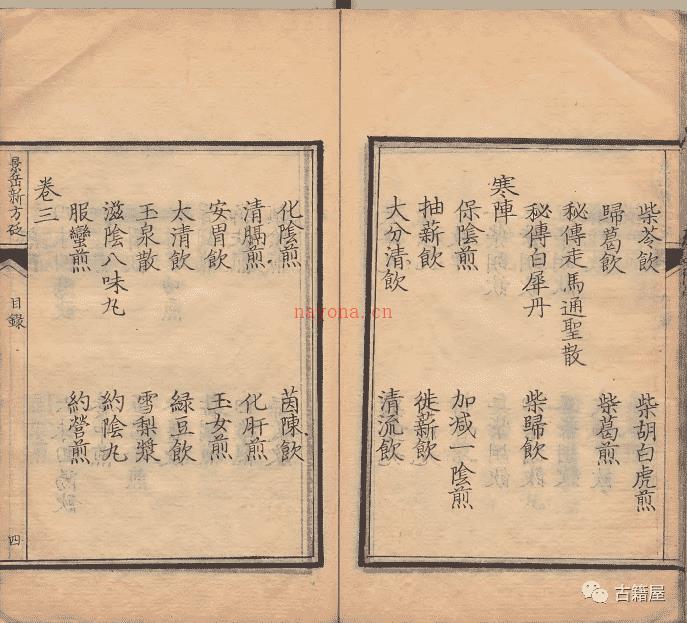 柴苓飲 柴胡白虎煎
歸葛飲 柴葛煎
秘傳走馬通聖散
秘傳白犀丹 柴歸飲
寒陣
保陰煎 加减一陰煎
抽薪飲 徙薪飲
大分清飲 清流飲
化陰煎 茵陳飲
清膈煎 化肝煎
安胃飲 玉女煎
太清飲 綠豆飲
玉泉散 雪梨漿
滋陰八味丸 約陰丸
服蠻煎 約營煎
卷三
景岳新方砭
目錄
四
nayona.cn
古籍屋